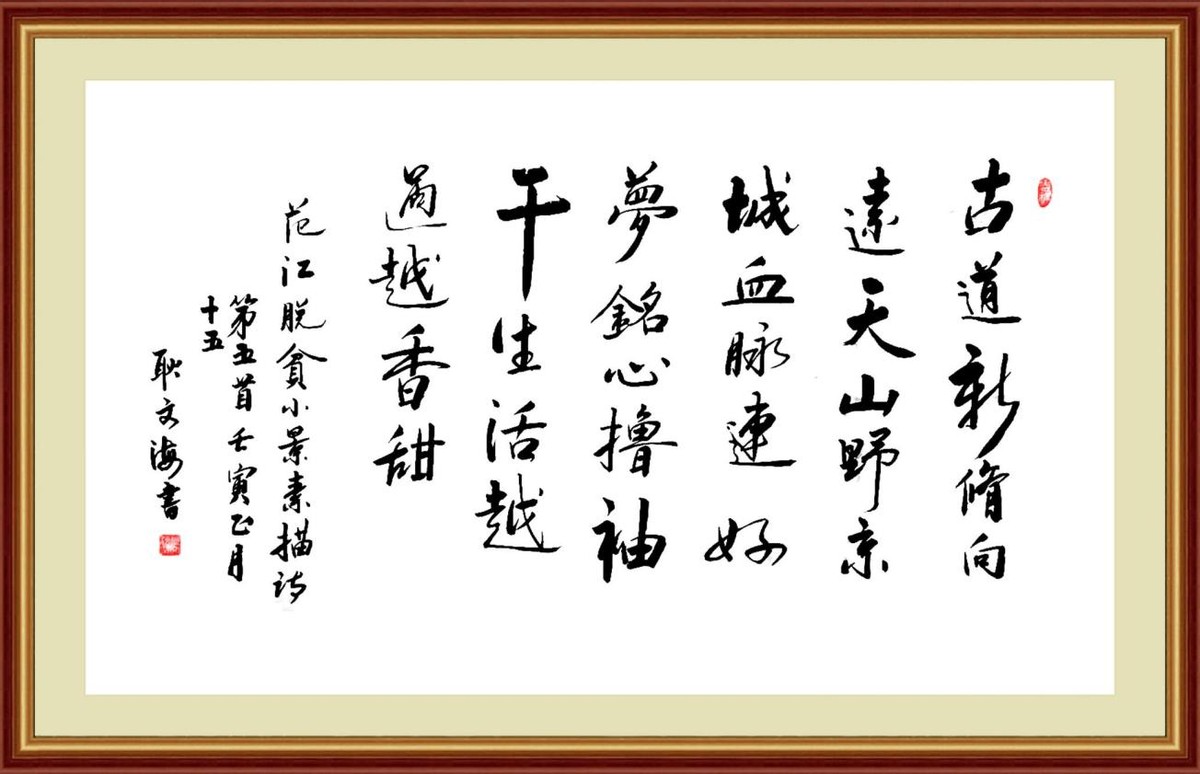 古道新脩向
遠天山野京
城血脉連好
夢銘心擼袖
干生活越
過越香甜
范江脱貧小景素描诗
第五首壬寅正月
十五
耿文海書